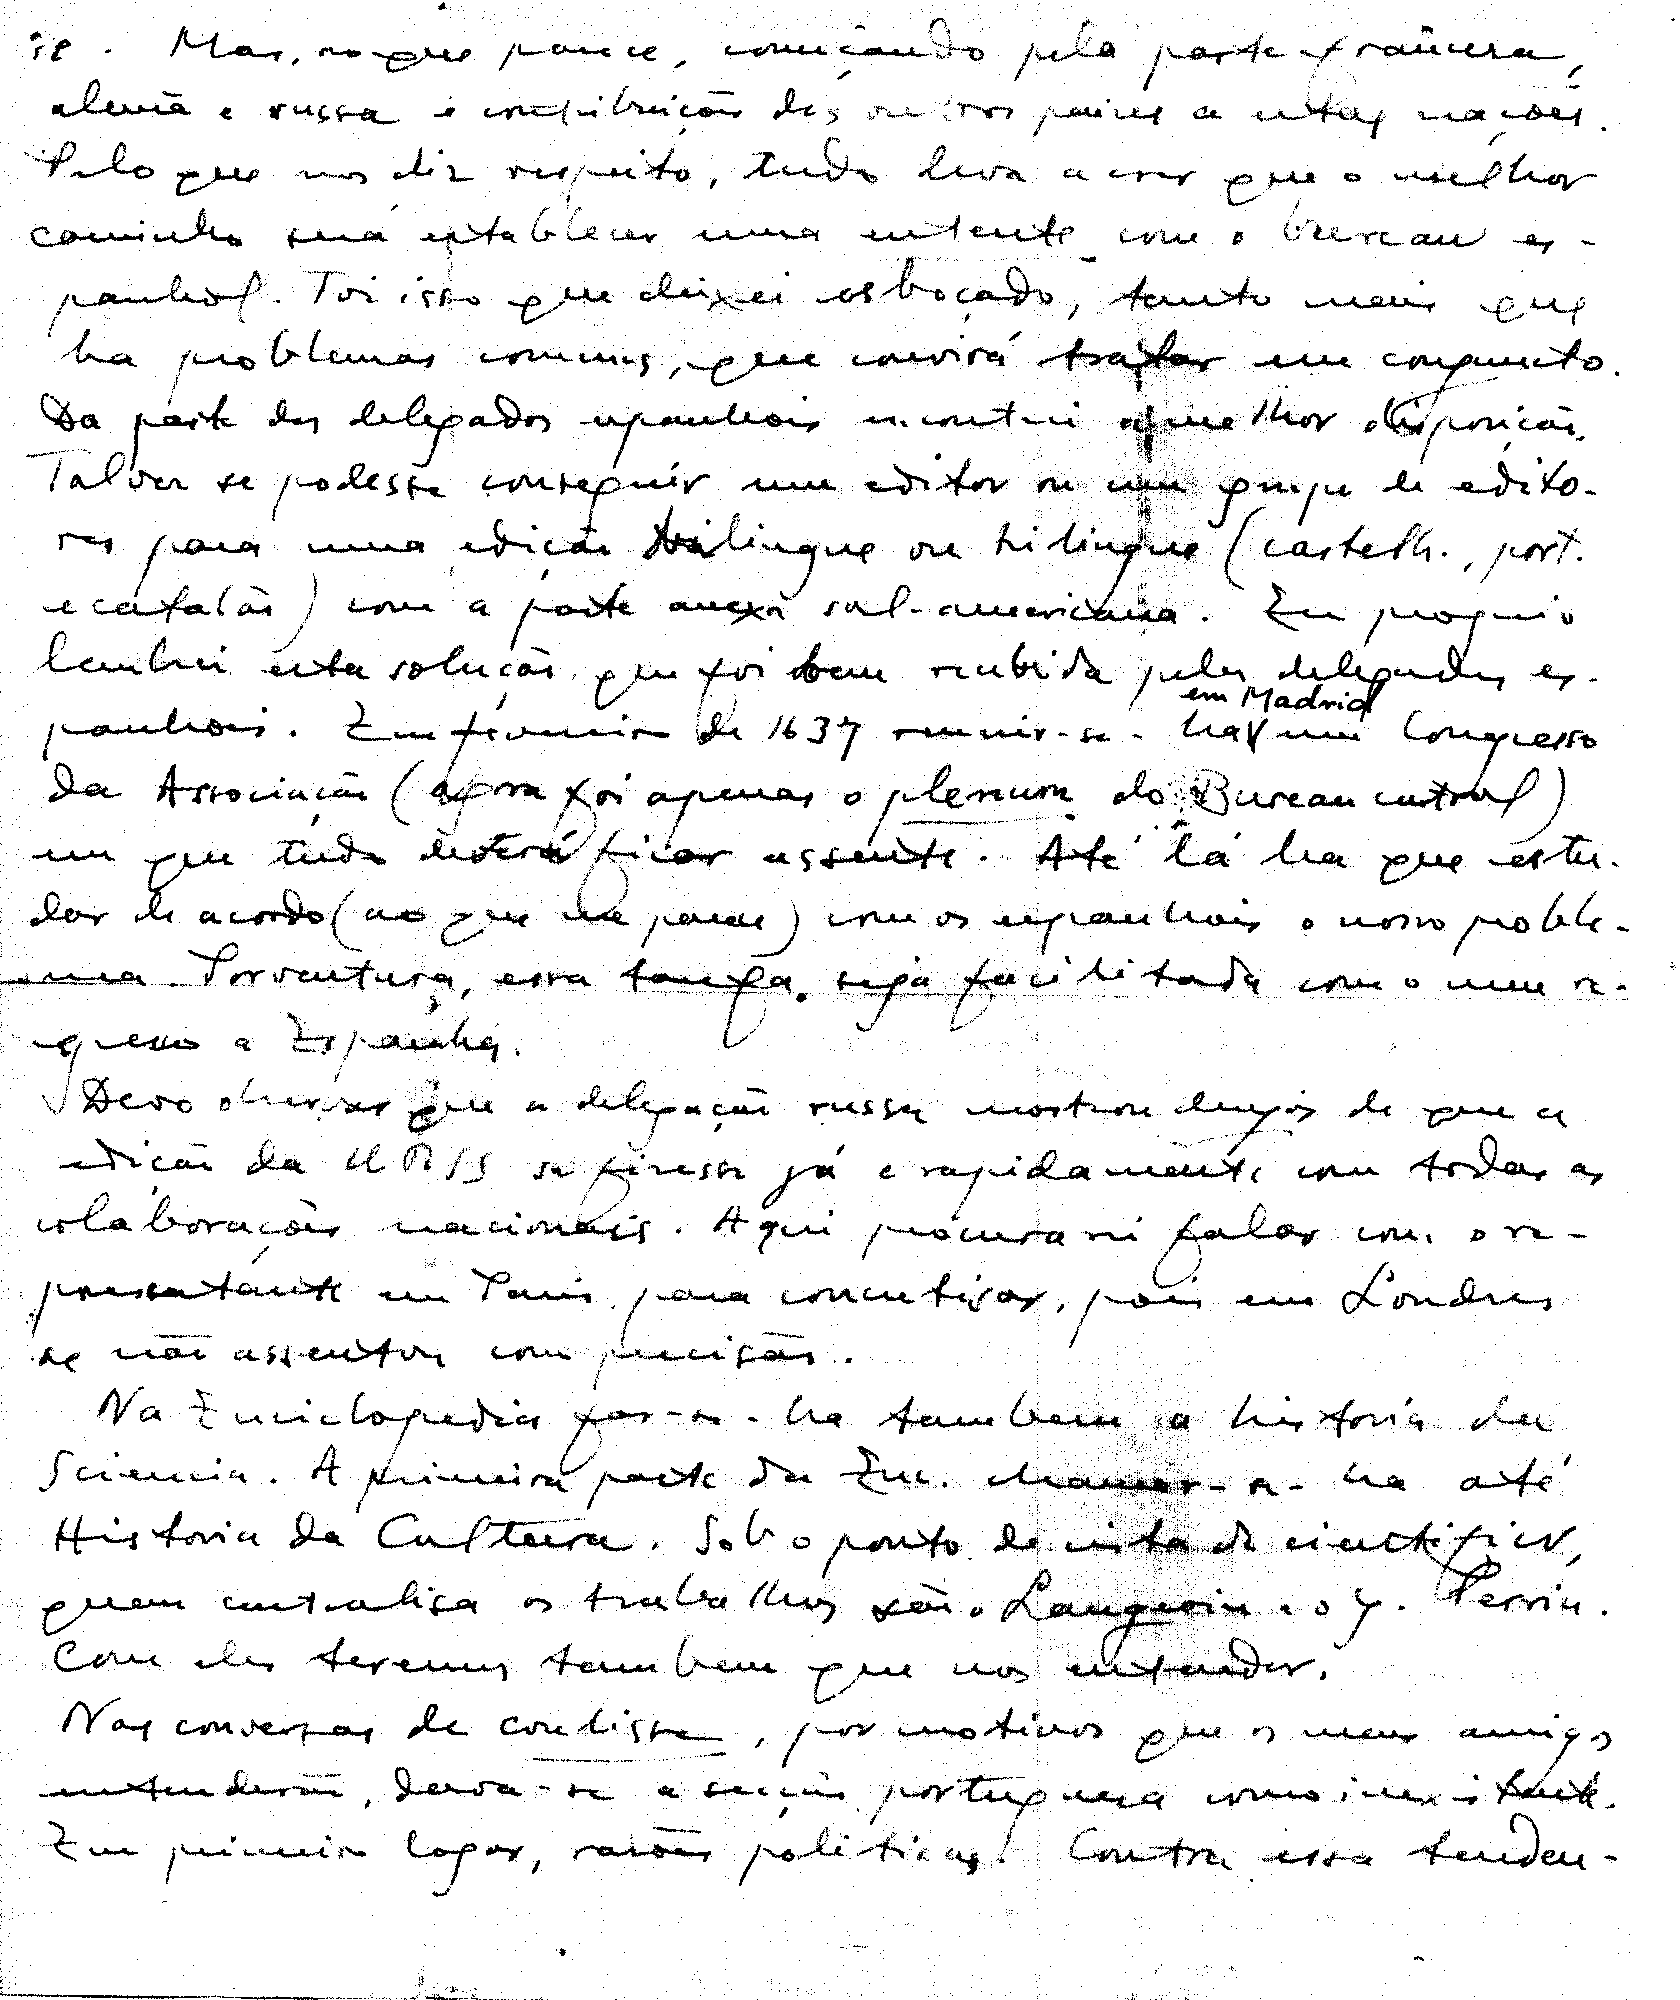 se. Mas, ao que parece, começando pela parte francesa,
alemã e russa e contribuição dos outros paises a estas nações.
Pelo que nos diz respeito, tudo leva a crer que o melhor
caminho será establecer uma entente com o bureau es-
panhol. Foi isso que deixei esboçado, tanto mais que
ha problemas comuns, que convirá tratar em conjuncto.
Da parte dos delegados espanhois encontrei a melhor disposição.
Talvez se podesse conseguir um editor ou um grupo de edito-
res para uma edição bilingue ou trilingue (castelh., port.
e catalão) com a parte anexa sul-americana. Eu proprio
lembrei esta solução que foi bem recebida pelos delegados es-
panhois. Em fevereiro de 1637 reunir-se-ha em Madrid um Congresso
da Associação (agora foi apenas o plenum do Bureau central)
em que tudo deverá ficar assente. Até lá ha que estu-
dar de acordo (ao que me parece) com os espanhois o nosso proble-
ma. Porventura, essa tarefa, seja facilitada com o meu re-
gresso a Espanha.
Devo observar que a delegação russa mostrou desejos de que a
edição da URSS se fizesse já e rapidamente com todas as
colaborações nacionais. Aqui procurarei falar com o re-
presentante em Paris para concretisar, pois em Londres
se não assentou com precisão.
Na Enciclopedia far-se-ha tambem a historia da
Sciencia. A primeira parte da Enc. chamar-se-ha até
Historia da Cultura. Sob o ponto de vista de cientifico,
quem centralisa os trabalhos são o Langevin e o J. Perrin.
Com eles teremos tambem que nos entender.
Nas conversas de coulisse, por motivos que os meus amigos
entenderão, dava-se a secção portuguesa como inexistente.
Em primeiro logar, razões politicas. Contra essa tenden-